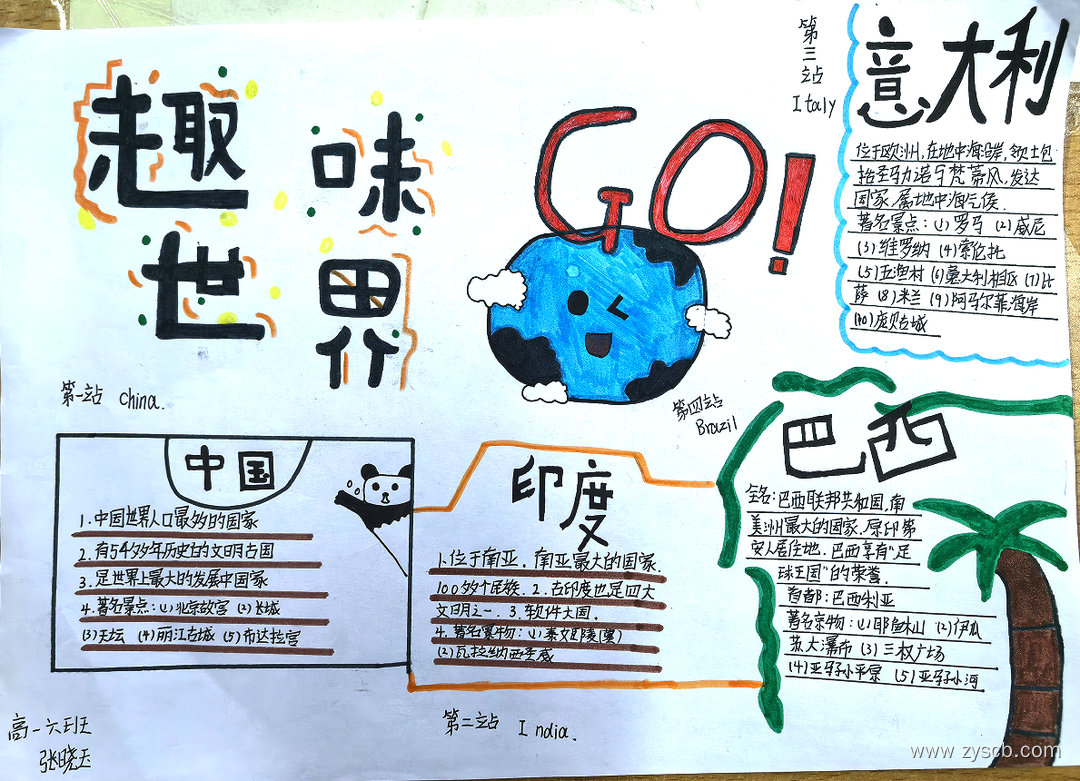 趣味
世界
GO!
第一站 China.
中国
1.中国世界人口最多的国家
2.有5千多年历史的文明古国
3.是世界上最大的发展中国家
4.著名景点:(1)北京故宫 (2)长城
(3)天坛 (4)丽江古城 (5)布达拉宫
第二站 India.
印度
1.位于南亚,南亚最大的国家.
100多个民族. 2.古印度也是四大
文明之一. 3.软件大国.
4.著名景物:(1)泰姬陵(墓)
(2)瓦拉纳西圣城
第三站
Italy
意大利
位于欧洲,在地中海沿岸,领土包
括圣马力诺与梵蒂冈,发达
国家,属地中海气候.
著名景点:(1)罗马 (2)威尼
(3)维罗纳 (4)索伦托
(5)五渔村 (6)意大利湖区 (7)比
萨 (8)米兰 (9)阿马尔菲海岸
(10)庞贝古城
第四站
Brazil
巴西
全名:巴西联邦共和国,南
美洲最大的国家.原印第
安人居住地.巴西享有"足
球王国"的荣誉.
首都:巴西利亚
著名景物:(1)耶稣山 (2)伊瓜
苏大瀑布 (3)三权广场
(4)亚马孙平原 (5)亚马孙河
高一六班
张晓玉
www.zyscb.com